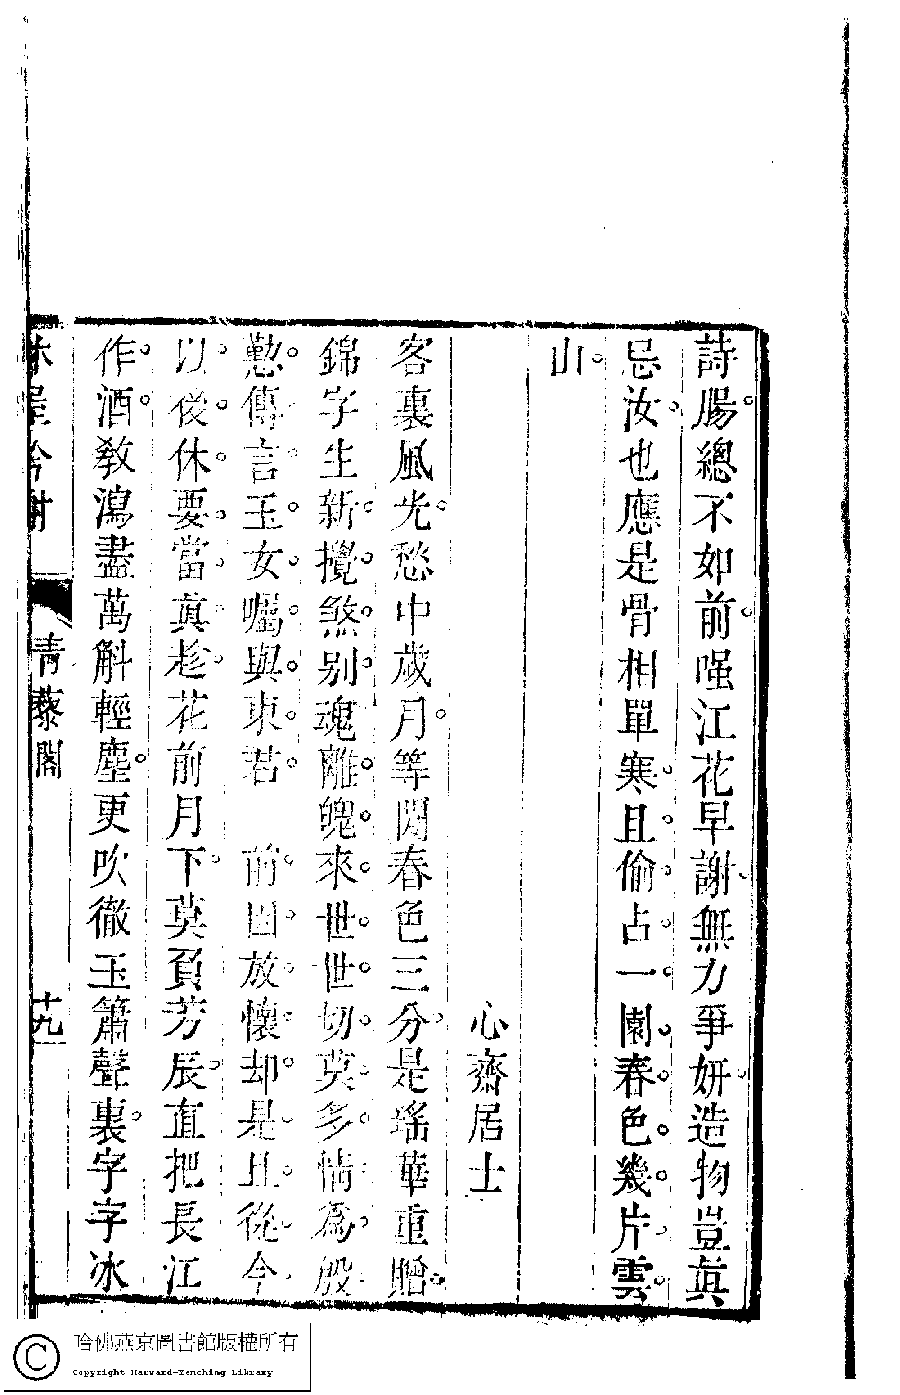 詩腸總不如前嗟江花早謝無力爭妍造物豈真
忌汝也應是骨相單寒且偷占一園春色幾片雲
山
心齋居士
客裏風光愁中歲月等閒春色三分是瑤華重贈
錦字生新攪煞别魂離魄來世世切莫多情為殷
懃傳言玉女囑與東君 前因放懷却是且從今
以後休要當真趁花前月下莫負芳辰直把長江
作酒教瀉盡萬斛輕塵更吹徹玉簫聲裏字字冰
青藜閣
十九
哈佛燕京圖書館版權所有
Copyright Harvard-Yenching Library